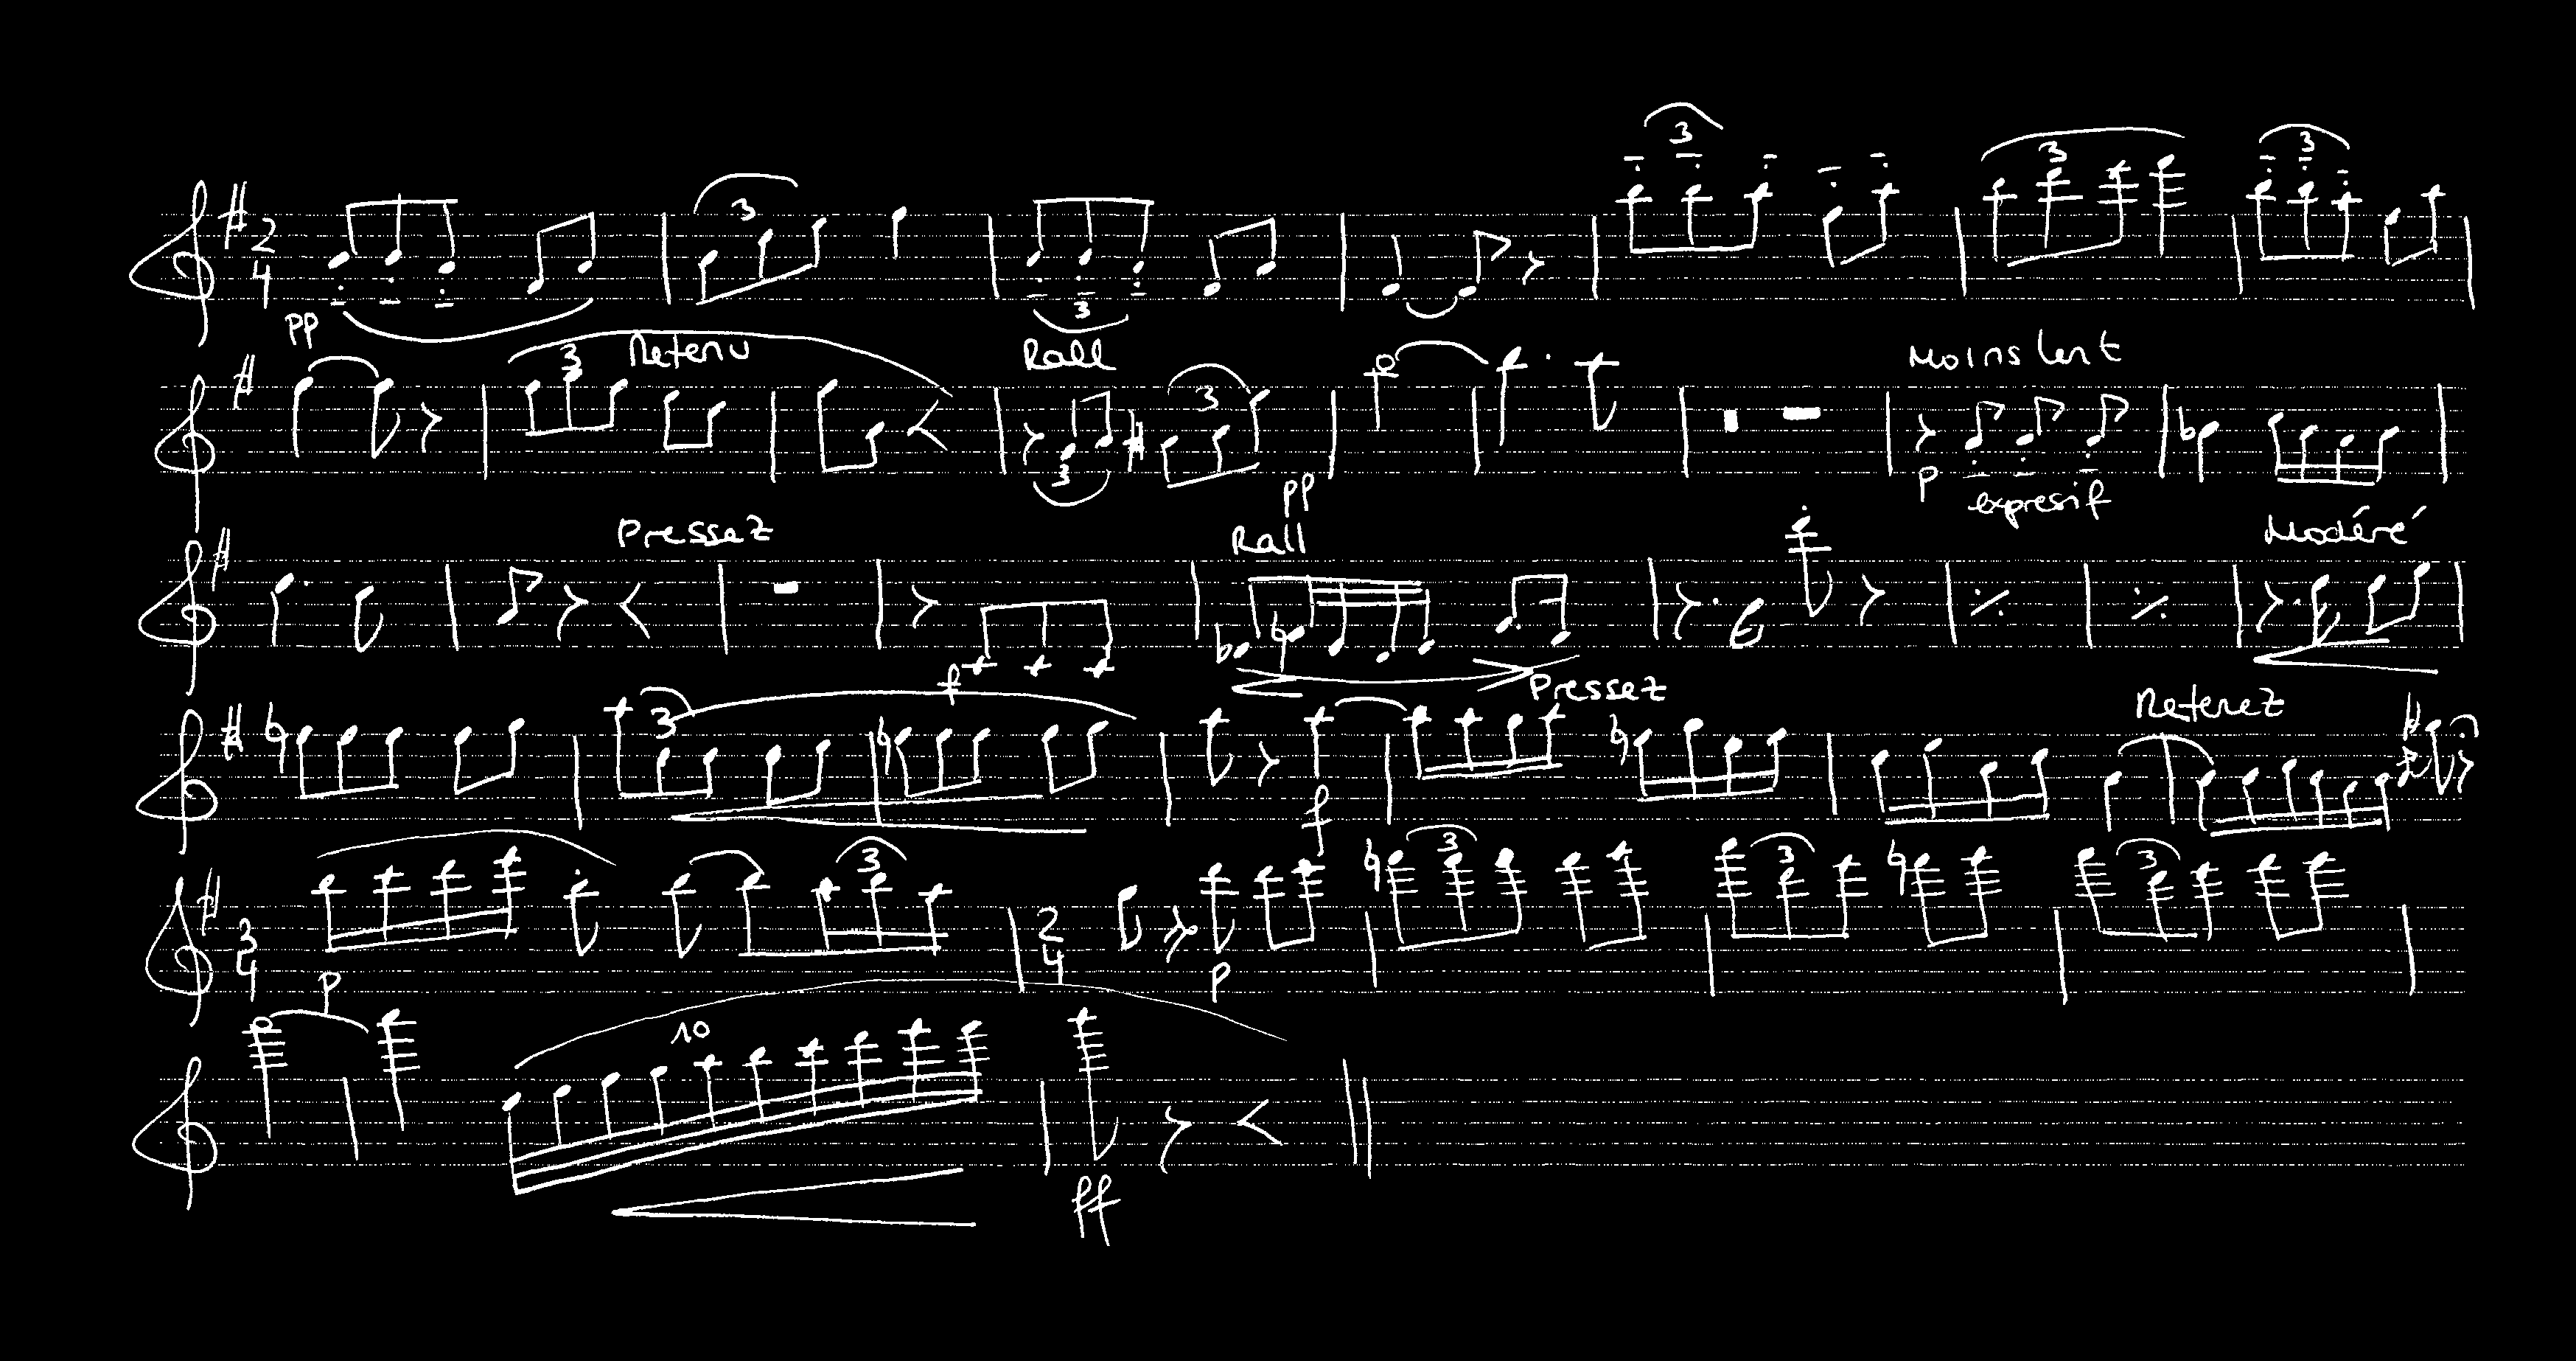 2
4
3
3
3
3
pp
3
Retenu
Rall
3
3
pp
Moins lent
p
expressif
Pressez
f
Rall
Modéré
3
Pressez
f
Retenez
3
4
p
3
2
4
p
3
3
3
10
ff